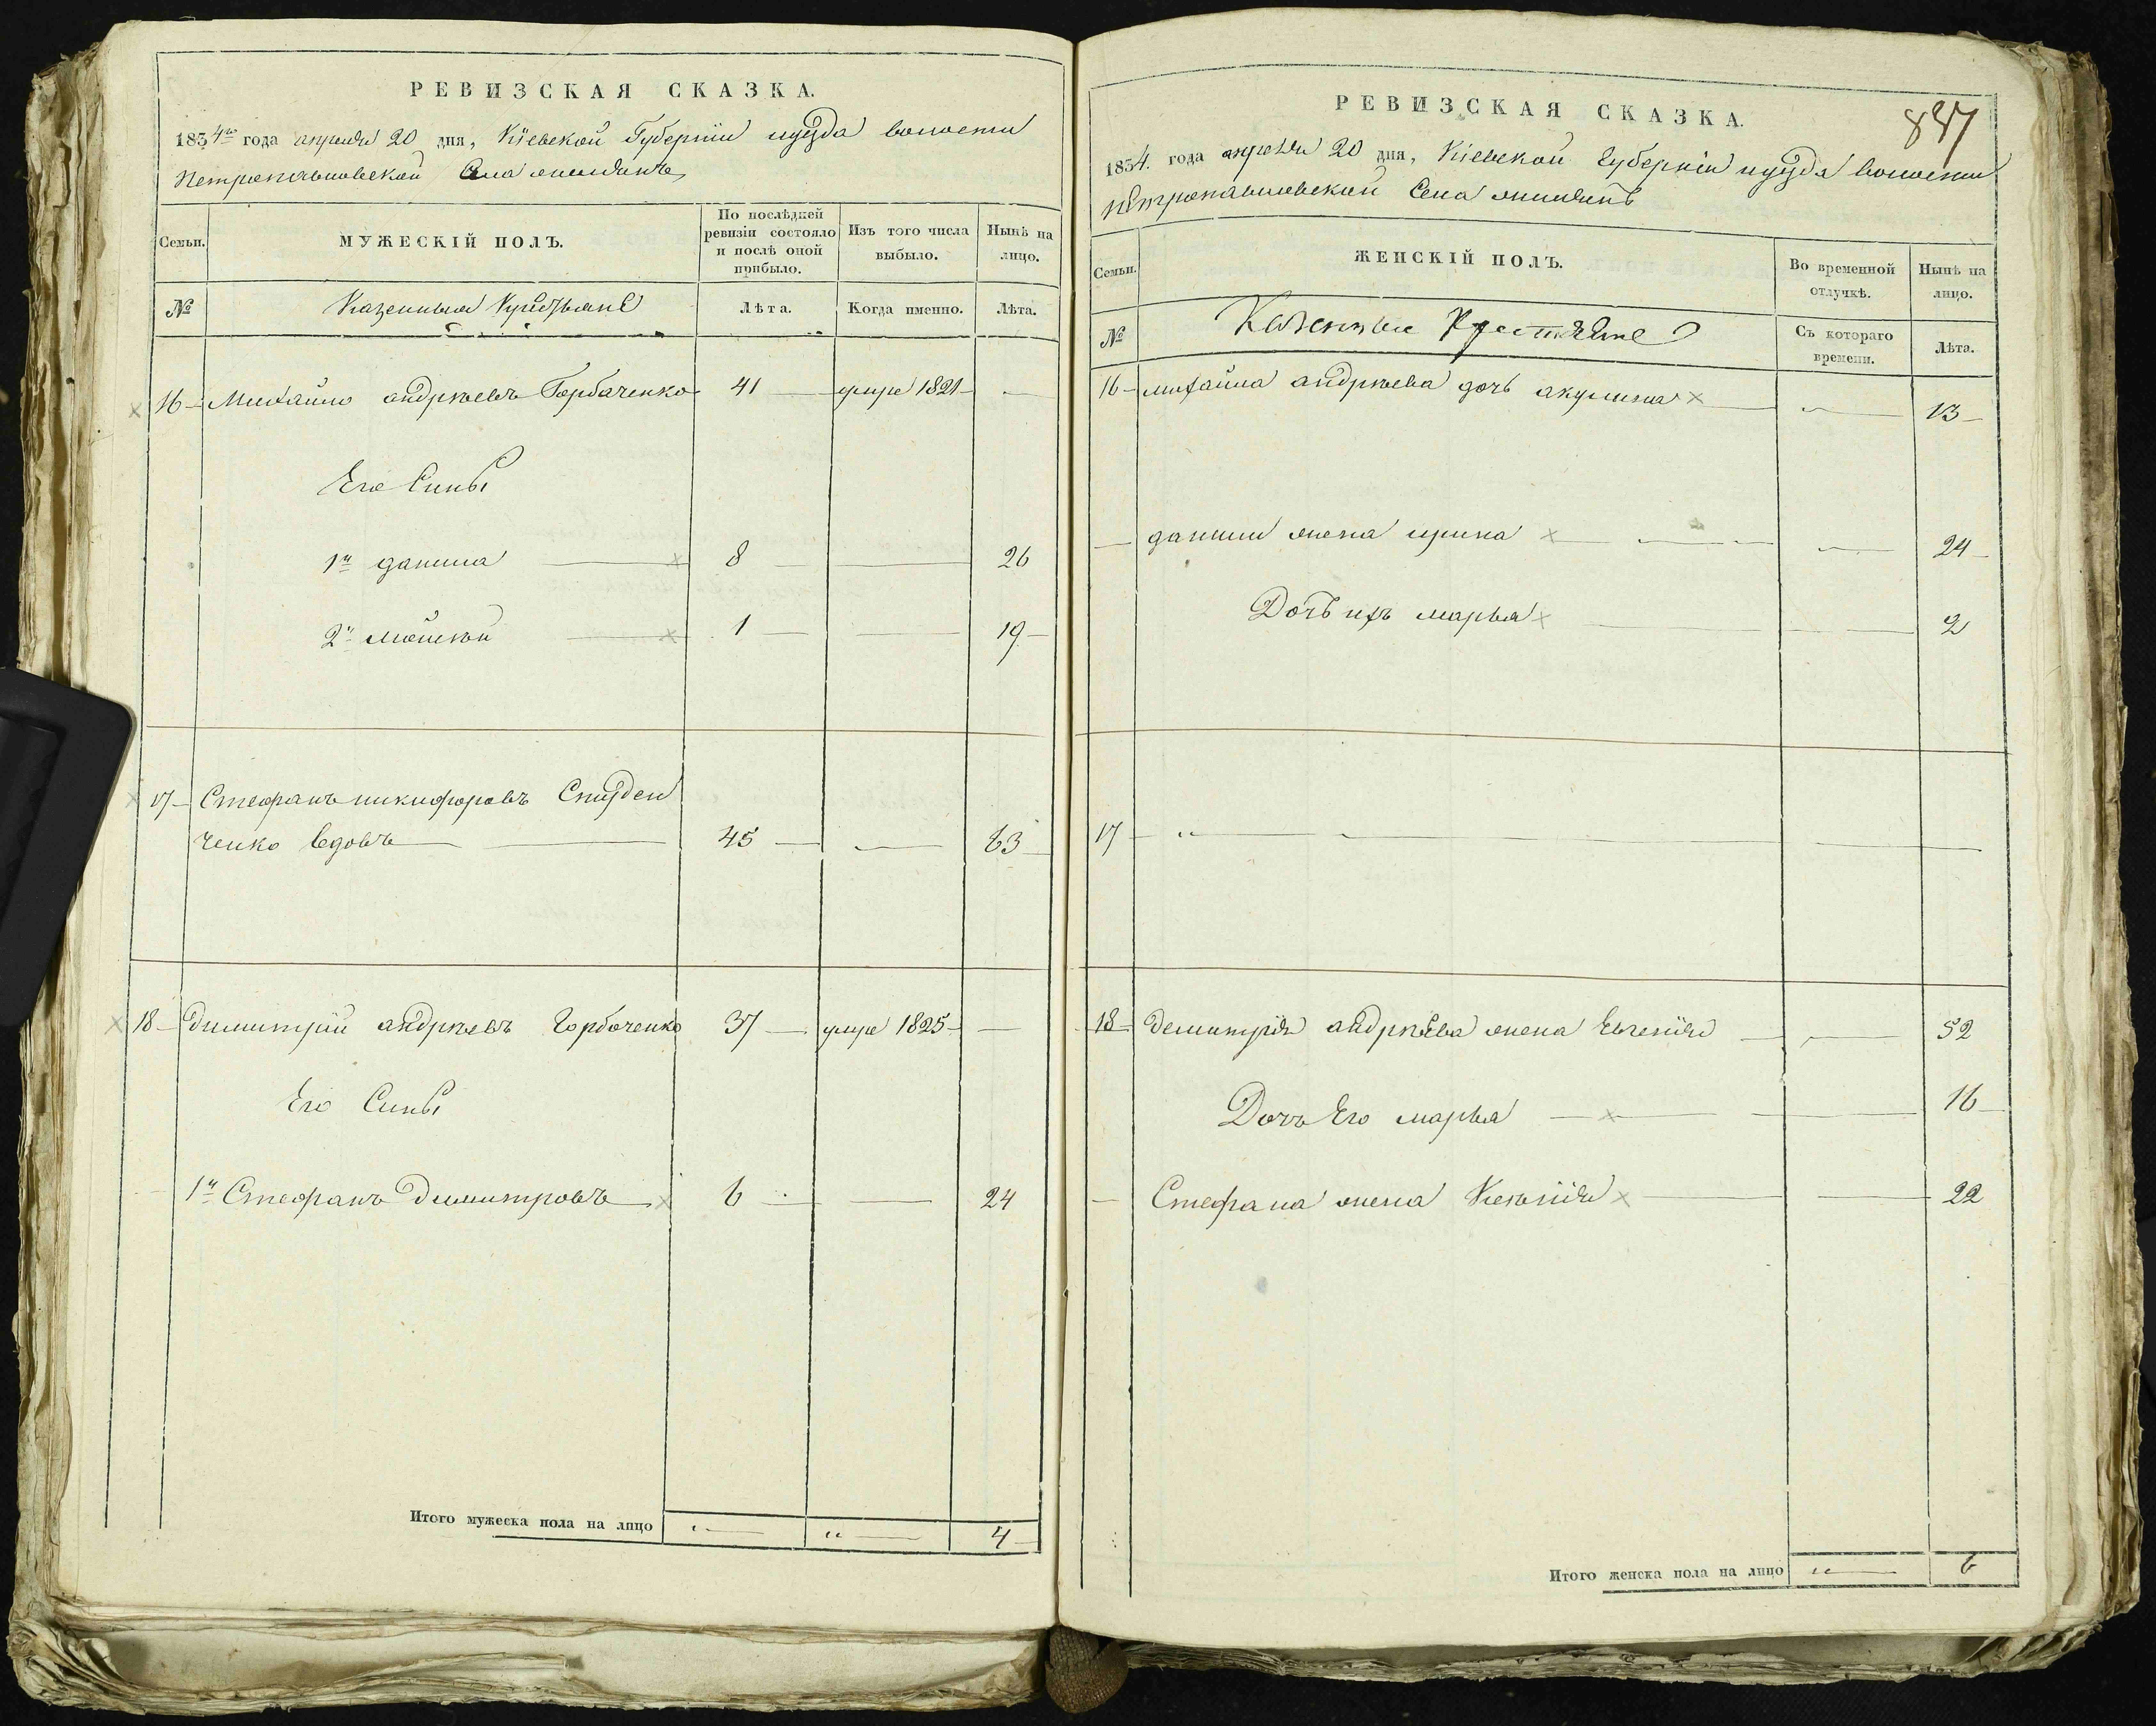 РЕВИЗСКАЯ СКАЗКА.
1834го года апреля 20 дня, Кіевской Губерніи уезда волости
петропавловской Села
Семьи.
МУЖЕСКІЙ ПОЛЪ.
По послѣдней ревизіи состояло и послѣ оной прибыло.
Изъ того числа выбыло.
Нынѣ на лицо.
№
Казенныя
Лѣта.
Когда именно.
Лѣта.
16 Михайло андрѣевъ Горбаченко 41 умре 1821
Его Сины
1й данила 8 26
2й 1 19
17 Стефанъ никифоровъ Студен
ченко вдовъ 45 63
18 димитрій андрѣевъ Горбоченко 37 умре 1825
Его Сины
1й Стефанъ Димитровъ 6 24
Итого мужеска пола на лицо 4
РЕВИЗСКАЯ СКАЗКА.
837
1834. года апреля 20 дня, Кіевской Губерніи уезда волости
петропавловской Села
Семьи.
ЖЕНСКІЙ ПОЛЪ.
Во временной отлучкѣ.
Нынѣ на лицо.
№
Казенные Крестяне
Съ котораго времени.
Лѣта.
16 михайла андрѣева дочь акулина 13
данили жена ирина 24
Дочь ихъ марья 2
17
18 демитрія андрѣева жена Евгенія 52
Дочъ Его марья 16
Стефана жена Ксенія 22
Итого женска пола на лицо 6